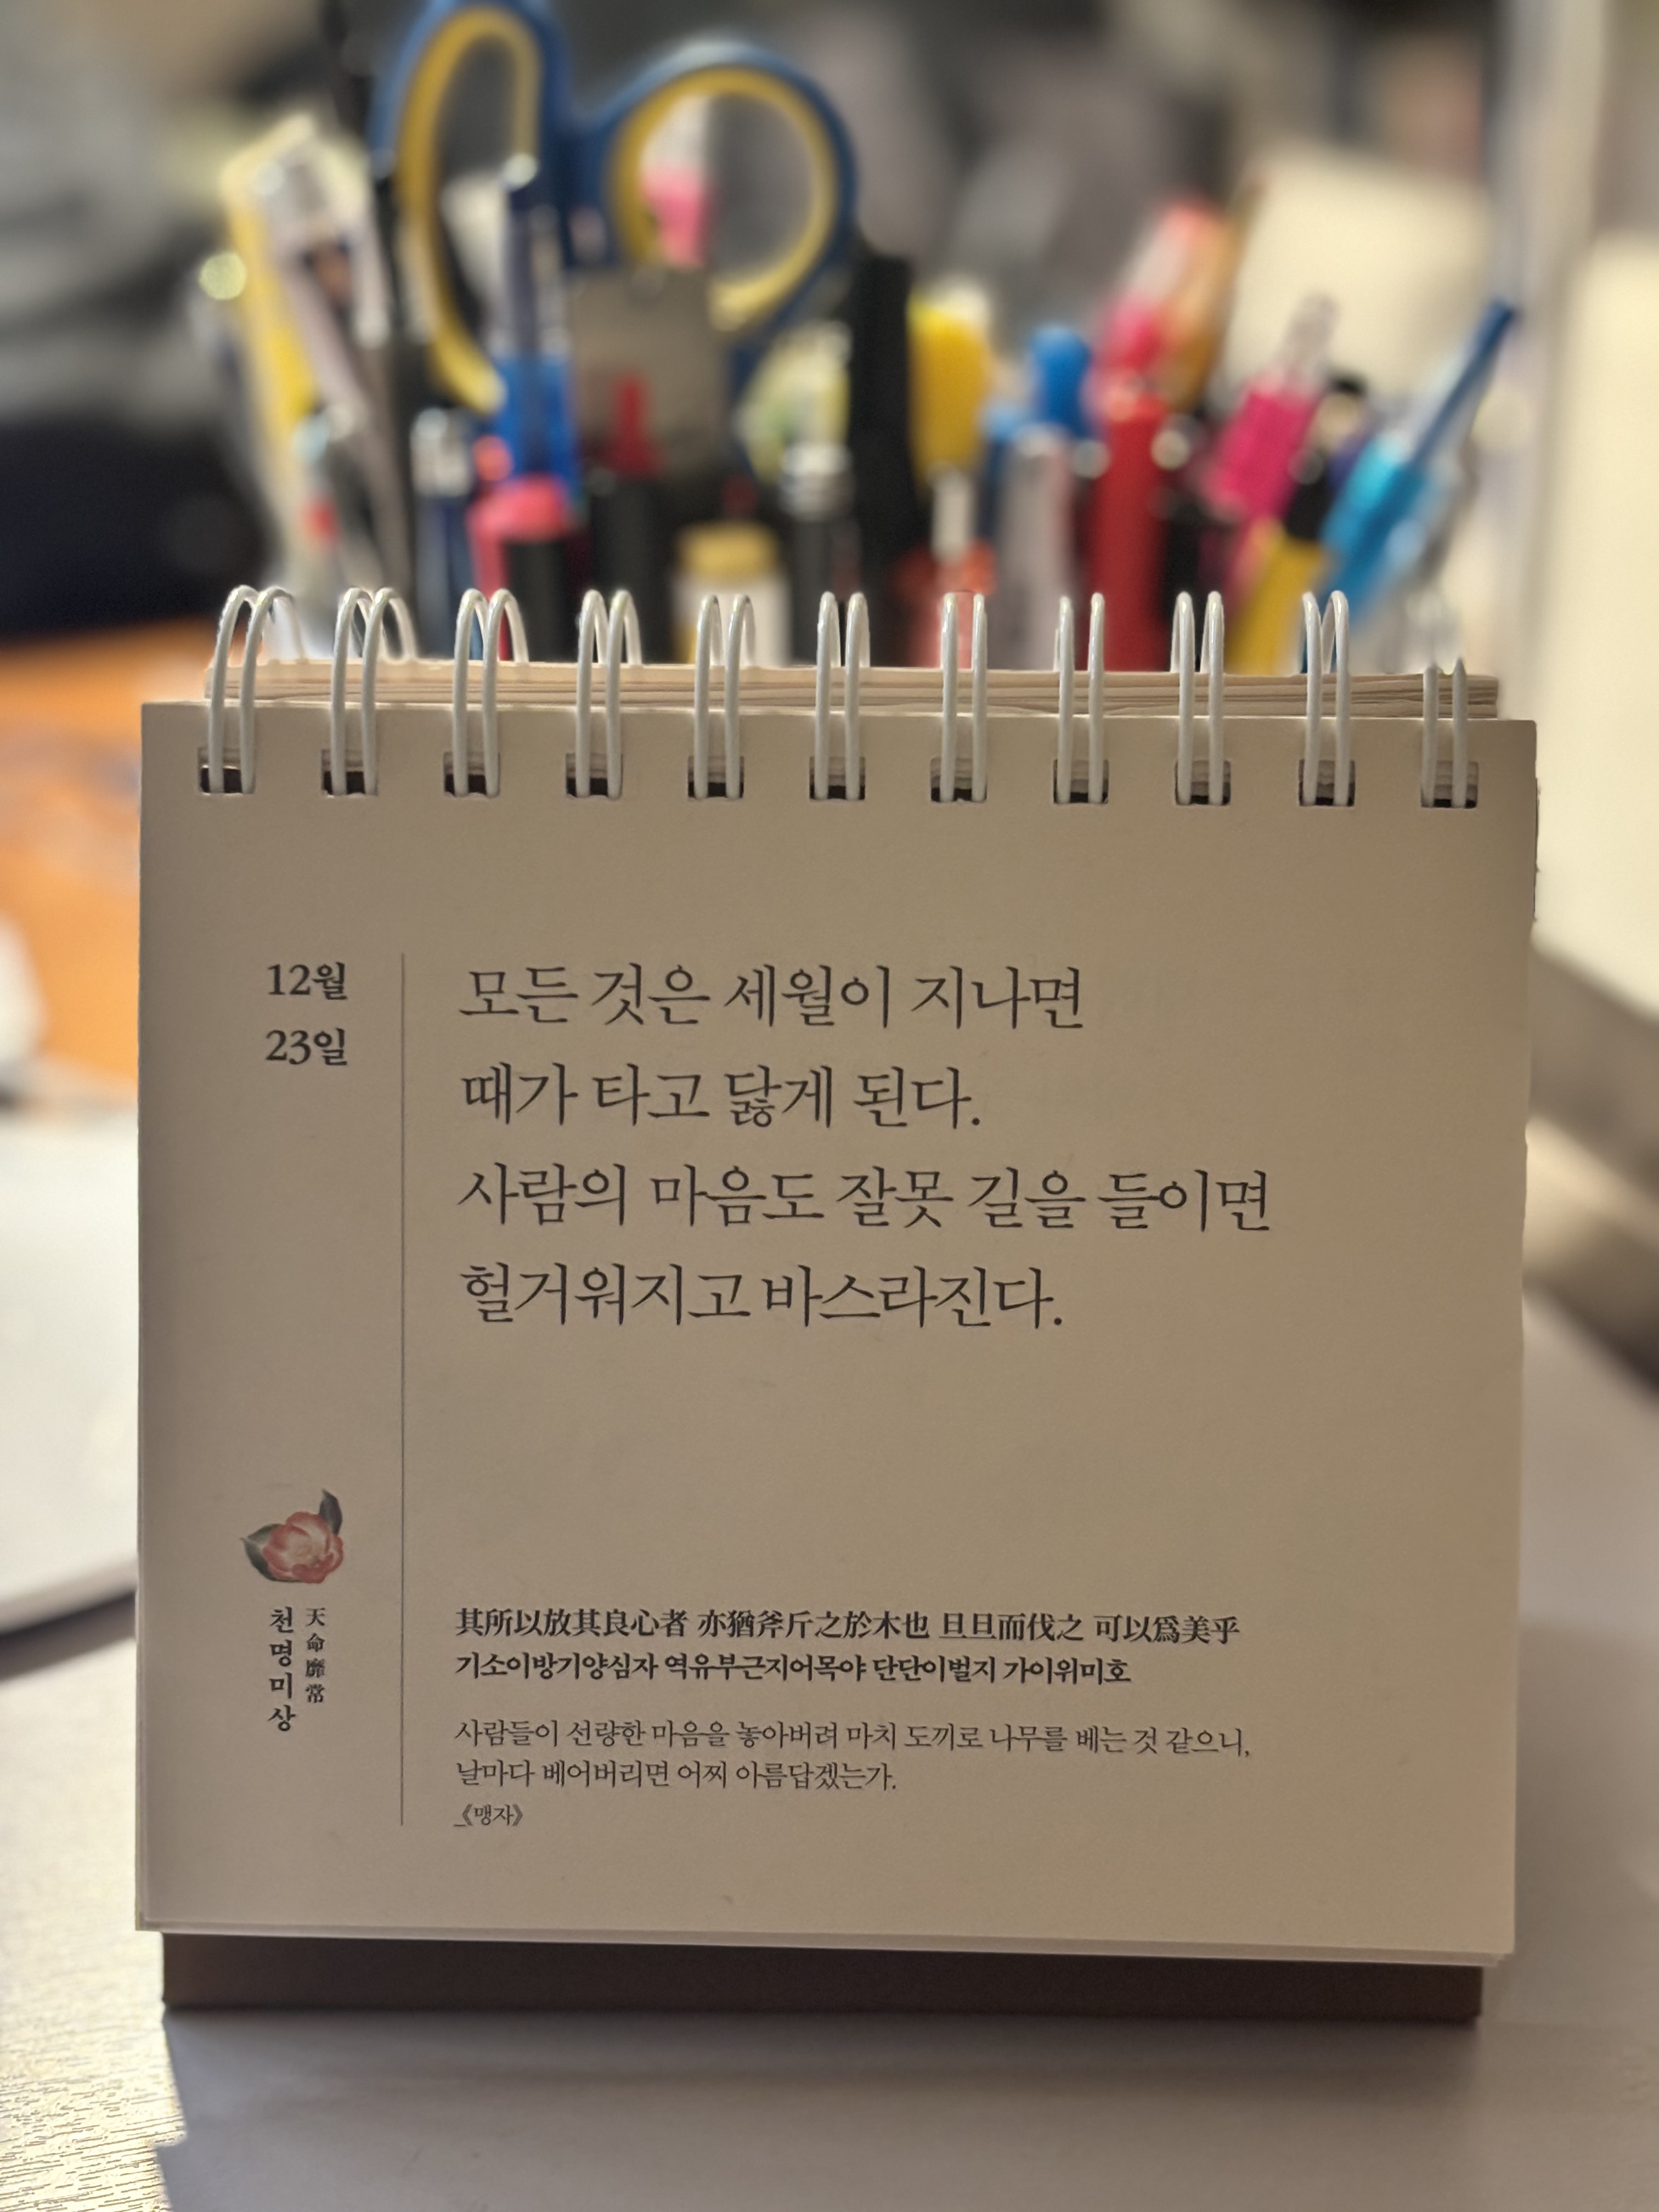 12월
23일
모든 것은 세월이 지나면
때가 타고 닳게 된다.
사람의 마음도 잘못 길을 들이면
헐거워지고 바스라진다.
天命靡常
천명미상
其所以放其良心者 亦猶斧斤之於木也 旦旦而伐之 可以爲美乎
기소이방기양심자 역유부근지어목야 단단이벌지 가이위미호
사람들이 선량한 마음을 놓아버려 마치 도끼로 나무를 베는 것 같으니,
날마다 베어버리면 어찌 아름답겠는가.
_《맹자》